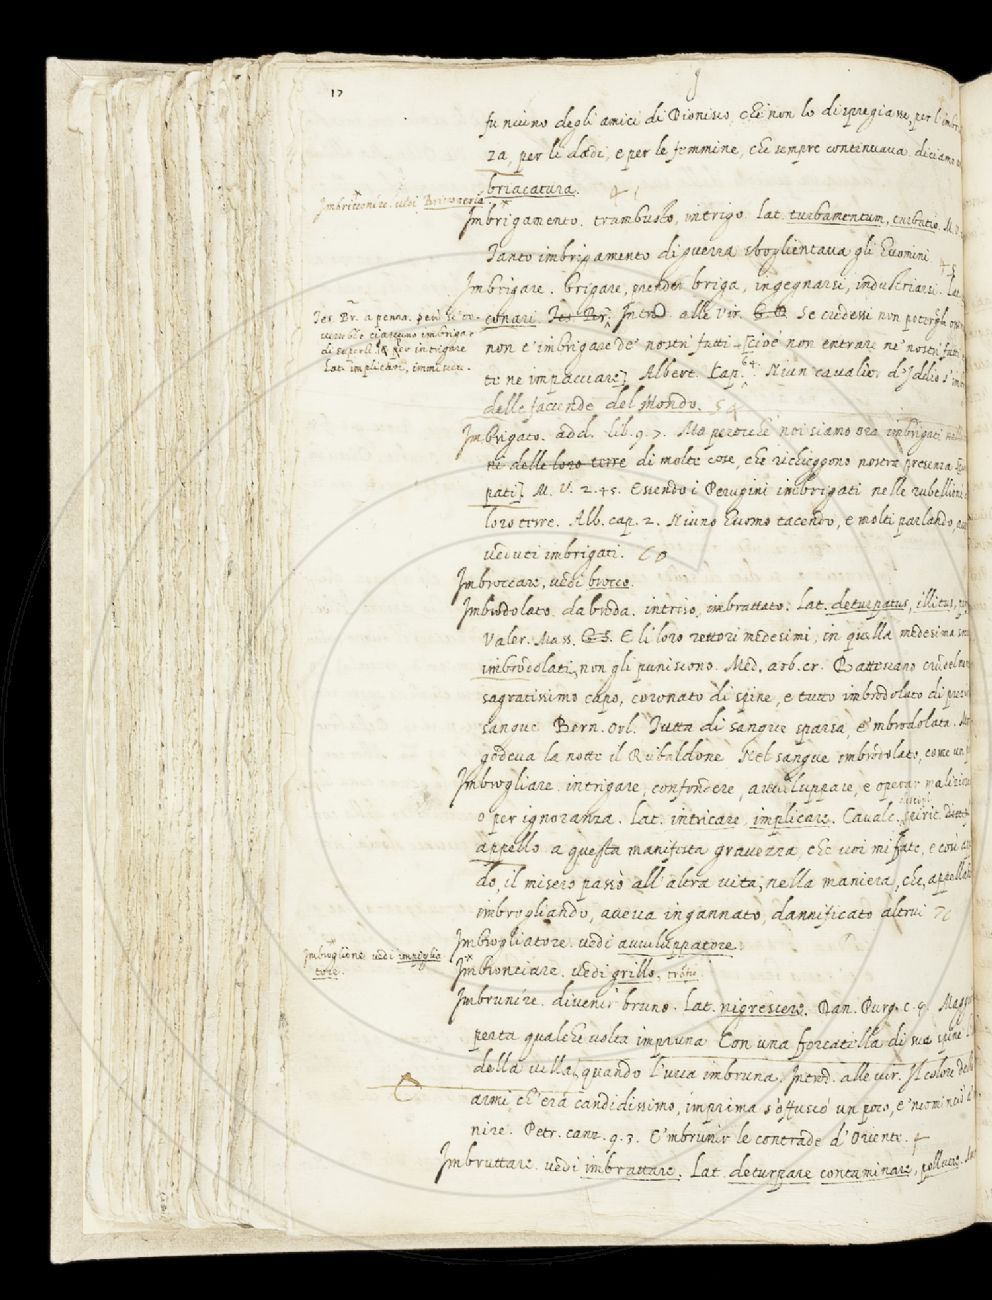 17
fu niuno degli amici di Dionisio, che non lo dispregiasse, per l'imbria
za, per li dadi, e per le femmine, che sempre continuava. diciamo
briacatura.
Imbricconire. vedi Bricconeria
Imbrigamento. trambusto, intrigo. Lat. turbamentum, turbatio. M.
Tanto imbrigamento di guerra sboglientava gli huomini
Imbrigare. brigare, prender briga, ingegnarsi, industriarsi. Lat.
conari. Tes. Br. Introd. alle Vir. Se credessi non potergli
non t'imbrigare de' nostri fatti [cioè non entrare ne' nostri fatti
te ne impacciare] Albert. Cap. 64. Niun cavalier d'Iddio s'imb
delle faccende del Mondo. 54
Tes. Br. a penna.
ciascuno imbrigar
di saperli. & per intrigare
Lat. implicari, immiscere.
Imbrigato. add. lib. 9. 7. Ma perochè noi siamo ora imbrigati
ni delle loro terre di molte cose, che richieggono nostra presenza
pati] M. V. 2. 45. Essendo i Perugini imbrigati nelle rubellioni
loro terre. Alb. cap. 2. Niuno huomo tacendo, e molti parlando,
veduti imbrigati. 60
Imbroccare, vedi brocco.
Imbrodolato. da broda. intriso, imbrattato. Lat. deturpatus, illitus,
Valer. Mass. E li loro rettori medesimi, in quella medesima
imbrodolati, non gli puniscono. Med. arb. cr. Battevano crudel
sagratissimo capo, coronato di spine, e tutto imbrodolato di
sangue Bern. Orl. Tutta di sangue sparsa, e 'mbrodolata.
godeva la notte il Rubaldone Nel sangue imbrodolato, come un
Imbrogliare. intrigare, confondere, avviluppare, e operar malizios
o per ignoranza. Lat. intricare, implicare. Cavalc. spirit.
appello a questa manifesta gravezza, che voi mi fate, e così
do, il misero passò all'altra vita, nella maniera, che, appella
imbrogliando, aveva ingannato, dannificato altrui 70
Imbrogliatore. vedi avviluppatore.
Imbroglione. vedi impiglia
tore.
Imbronciare. vedi grillo,
Imbrunire. divenir bruno. Lat. nigrescere. Dan. Purg. c. 4. Maggio
perta qualche volta impruna Con una forcatella di sue spine
della villa, quando l'uva imbruna. Introd. alle vir. Il colore dell
armi ch'era candidissimo, imprima s'offuscò un poco, e 'ncominciò
nire. Petr. canz. 9. 3. E 'mbrunir le contrade d'Oriente.
Imbruttare. vedi imbrattare. Lat. deturpare contaminare, polluere.